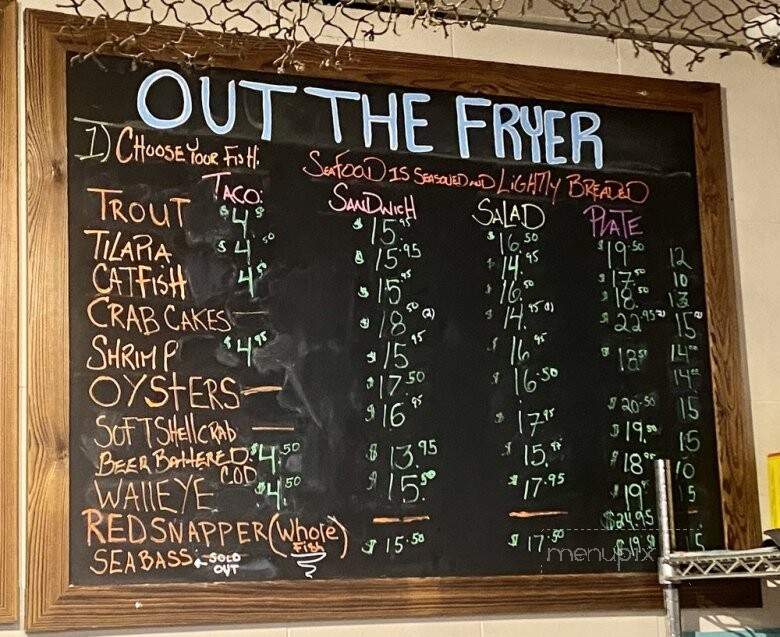 OUT THE FRYER
1) CHOOSE YOUR FISH:
SEAFOOD IS SEASONED AND LIGHTLY BREADED
TACO: SANDWICH SALAD PLATE
TROUT $4 $15.95 $16.50 $19.50 12
TILAPIA $4.50 $15.95 $14.95 $17.50 10
CATFISH 4.50 $15.95 $16.50 $18.50 13
CRAB CAKES — $18.50 (2) $14.95 (1) $22.95 (2) 15
SHRIMP $4.95 $15.95 $16.95 $18 14
OYSTERS — $17.50 $16.50 $20.50 14
SOFTSHELLCRAB — $16.95 $17.95 $19 15
BEER BATTERED COD $4.50 $13.95 $15. $18 15
WALLEYE $4.50 $15.50 $17.95 $19 10
RED SNAPPER (Whole FISH) — — $24.95 5
SEABASS. SOLD OUT $15.50 $17.50 $19 15
menupix